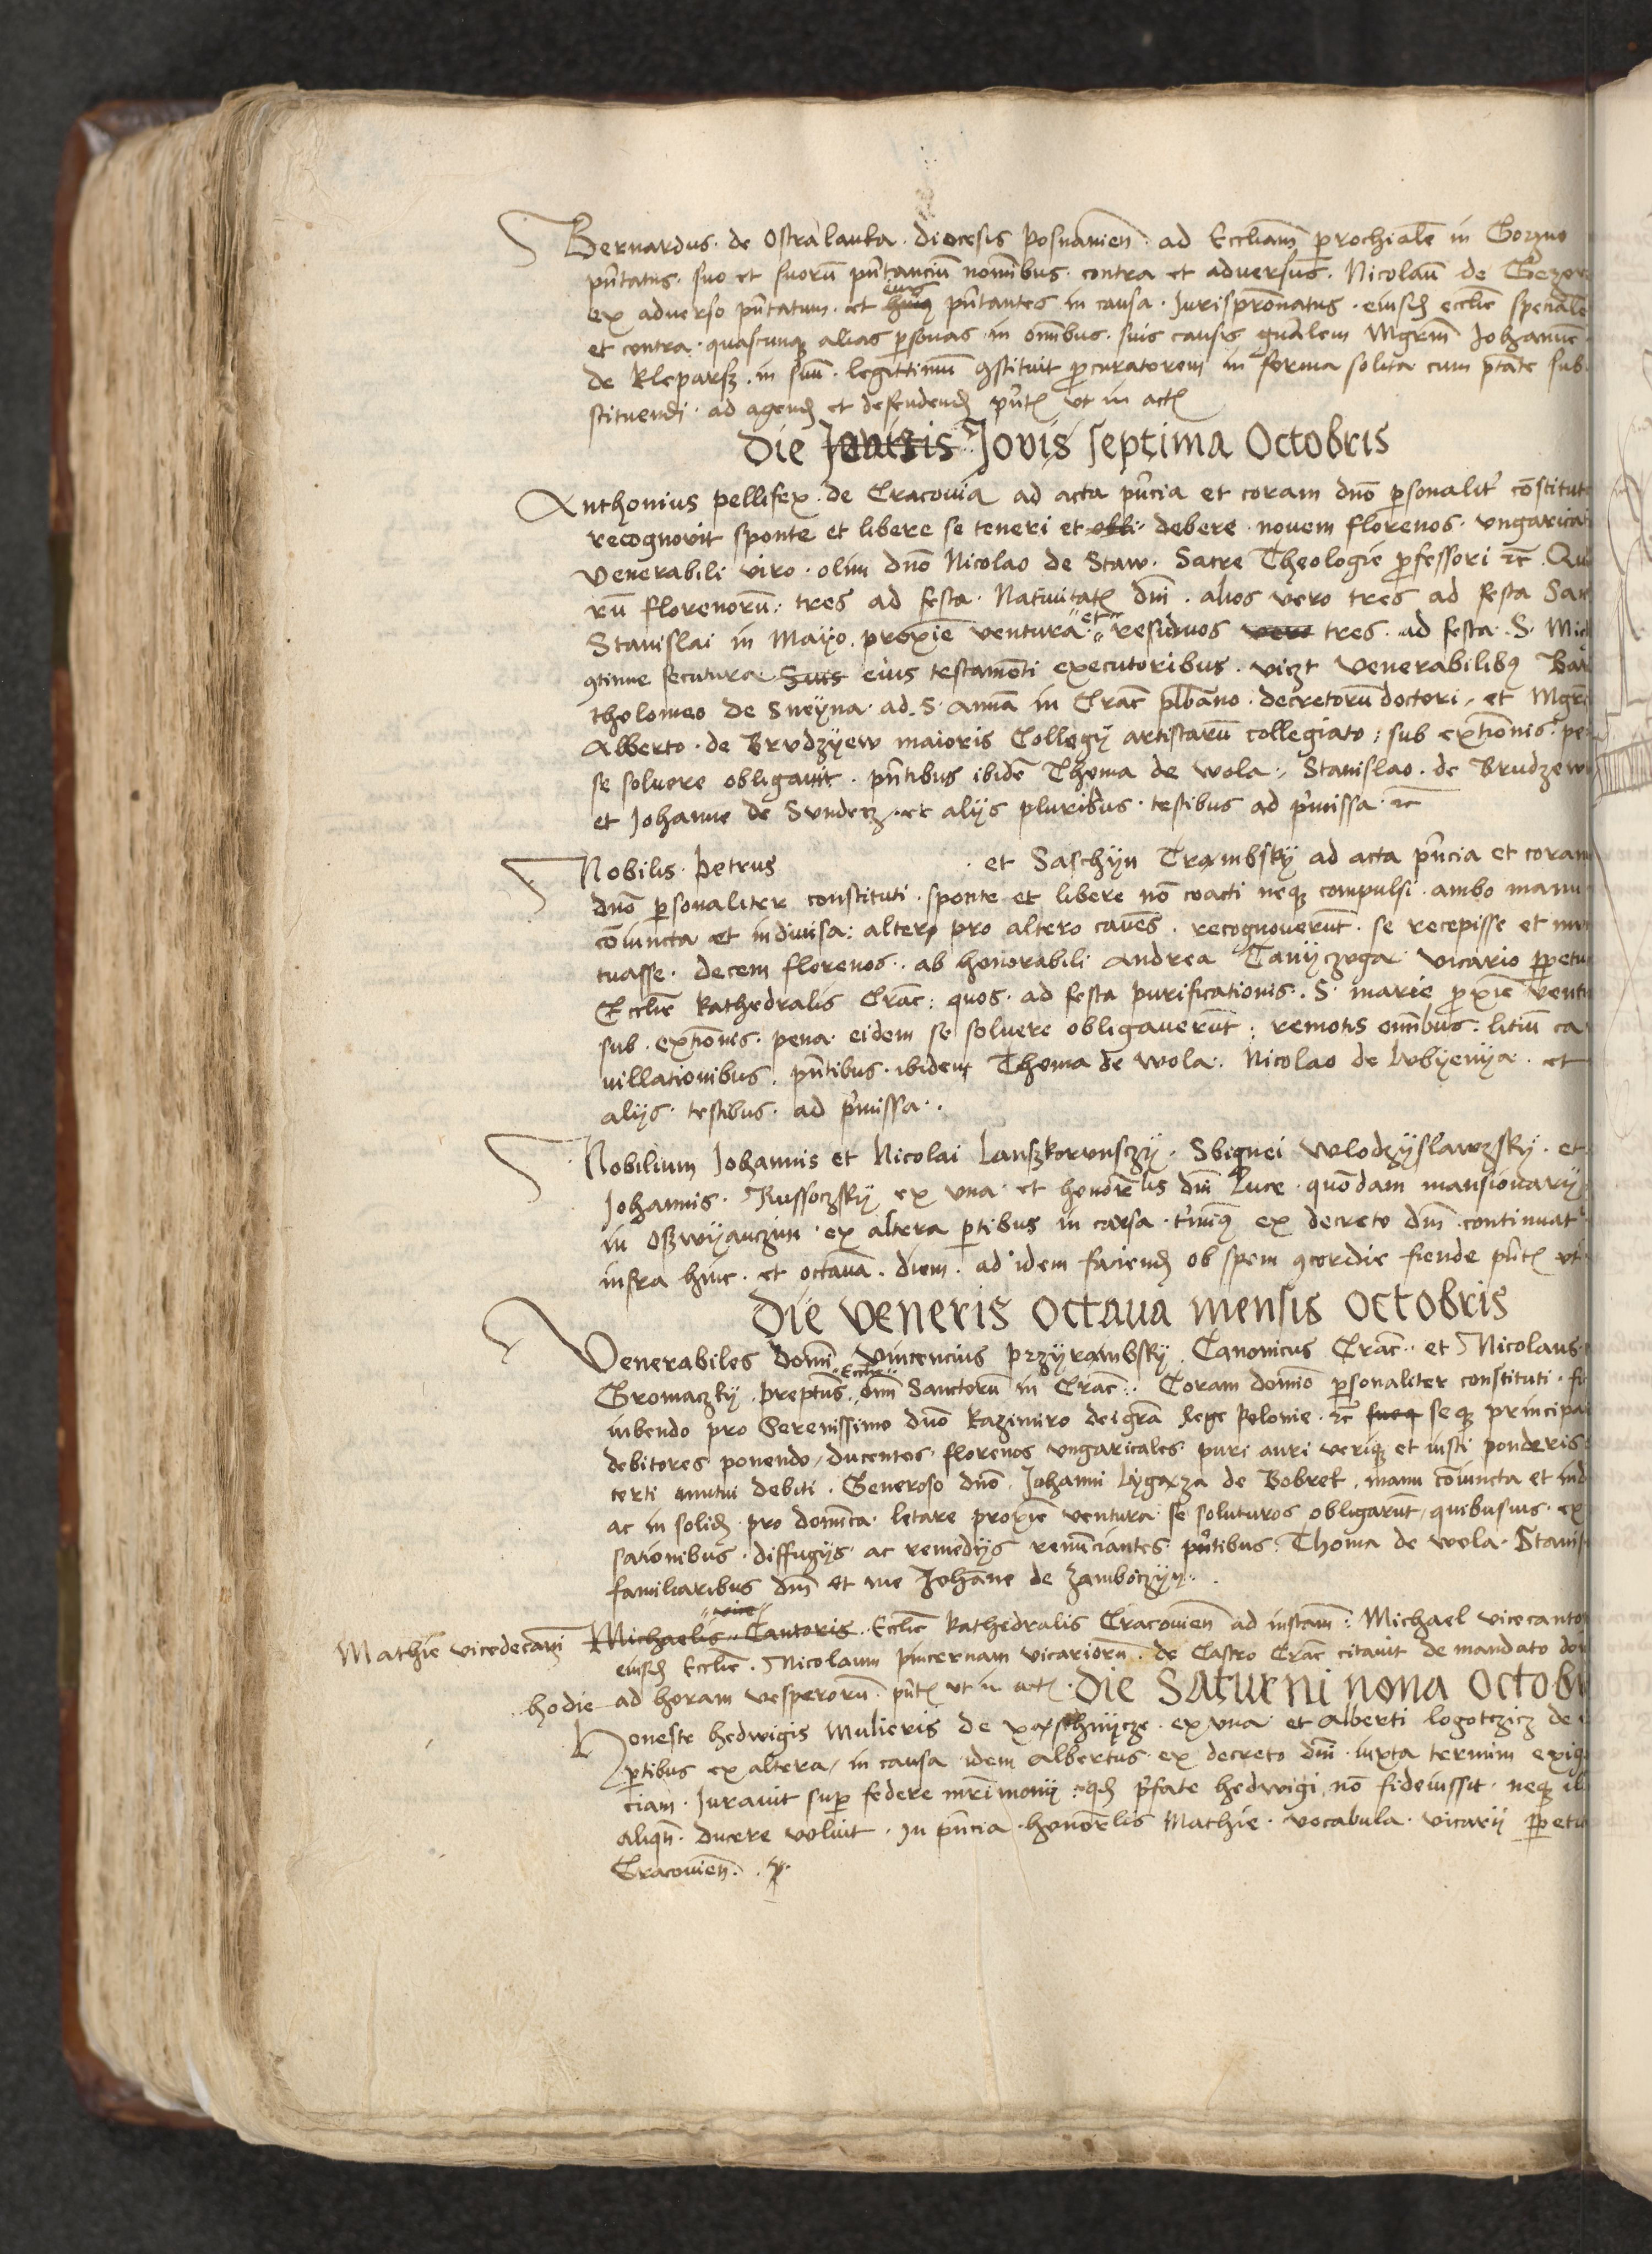 Bernardus de Ostralanka diocesis Posnanien ad Eccliam prochialē in Gorzno
pn̄tatus suo et suorū pn̄tanciū nomībus contra et adversus Nicolaū de
ex adverso pn̄tatum et eius pn̄tantes in causa Jurisprōnatus eiusd ecclīe speciale
et contra quascunq alias psonas in omībus suis causis gnālem Mgrm Johannē
de Kleparz in suū legittimū 9stituit pcuratorem in forma solita cum ptāte sub
stituendi ad agend et defendend pn̄t ut in act
Die Jovis septima Octobris
Anthonius pellifex de Cracovia ad acta pn̄cia et coram dnō psonalit cōstitut
recognovit sponte et libere se teneri et debere novem florenos ungarical
Venerabili viro olim dnō Nicolao de Staw Sacre Theologie pfessori zc Qu
rū florenorū tres ad festa Nativitat dni alios vero tres ad festa San
Stanislai in Mayo proxīe ventura et residuos vero tres ad festa S Mic
9tinue secutura Suis eius testamēti executoribus vizt venerabilib9 Bar
tholomeo de Sneyna ad S Annā in Crac plbano decretorū doctori et Mgrō
Alberto de Brudzyew maioris Collegij artistarū collegiato sub extiōnis pe
se solvere obligavit pn̄tibus ibidē Thoma de Wola Stanislao de Brudzew
et Johanne de Sundecz et alijs pluribus testibus ad pmissa zc
Nobilis Petrus et Saschyn Trambsky ad acta pn̄cia et coram
dnō psonaliter constituti sponte et libere nō coacti neq compulsi ambo manu
cōiuncta et indivisa alter pro altero cavēs recognoverūt se recepisse et mu
tuasse decem florenos ab honorabili Andrea vicario ppetu
Ecclīe Kathedralis Crac quos ad festa purificationis S marie pxīe ventu
sub extiōnis pena eidem se solvere obligaverūt remotis omībus litiū ca
villationibus pn̄tibus ibidem Thoma de Wola Nicolao de Lubyenya et
alijs testibus ad pmissa
Nobilium Johannis et Nicolai Lanszkorunsczy Sbignei Wlodzyslawzsky et
Johannis Russoczsky ex una et honorālis dni Luce quondam mansionarij
in Oszwyanczim ex altera ptibus in causa tīn9 ex decreto dni continuat
infra hinc et octavā diem ad idem faciend ob spem 9cordie fiende pn̄t ut
Die Veneris octava mensis Octobris
Venerabiles domī Vincencius Przyrambsky Canonicus Crac et Nicolaus
Gromaczky preptus Ecclie omī Sanctorū in Crac Coram domīo psonaliter constituti fi
iubendo pro Serenissimo dnō Kazimiro dei gra Rege Polonie zc seq principa
debitores ponendo ducentos florenos ungaricales puri auri veriq et iusti ponderis
certi mutui debiti Generoso dnō Johanni Lygaza de Bobrek manu cōiuncta et ind
ac in solid pro domīca letare proxīe ventura se soluturos obligarūt quibusvis ex
sationibus diffugijs ac remedijs renūciantes pn̄tibus Thoma de Wola Stanis
familiaribus dni et me Johāne de Zamboczyn
Mathie vicedecani Michaelis vice Cantoris Ecclīe Kathedralis Cracovien ad instam Michael vicecanto
eiusd Ecclīe Nicolaum pincernam vicariorū de Castro Crac citavit de mandato do
hodie ad horam vesperorū pn̄t ut in act Die Saturni nona Octob
Honeste hedwigis Mulieris de ex una et Alberti logotczicz de
ptibus ex altera in causa idem Albertus ex decreto dni iuxta termīm exig
ciam Juravit sup federe mrīmonij qd pfate hedwigi nō fideiussit neq il
aliqn ducere voluit In pn̄cia honorālis Mathie vocabula vicarij ppetu
Cracovien